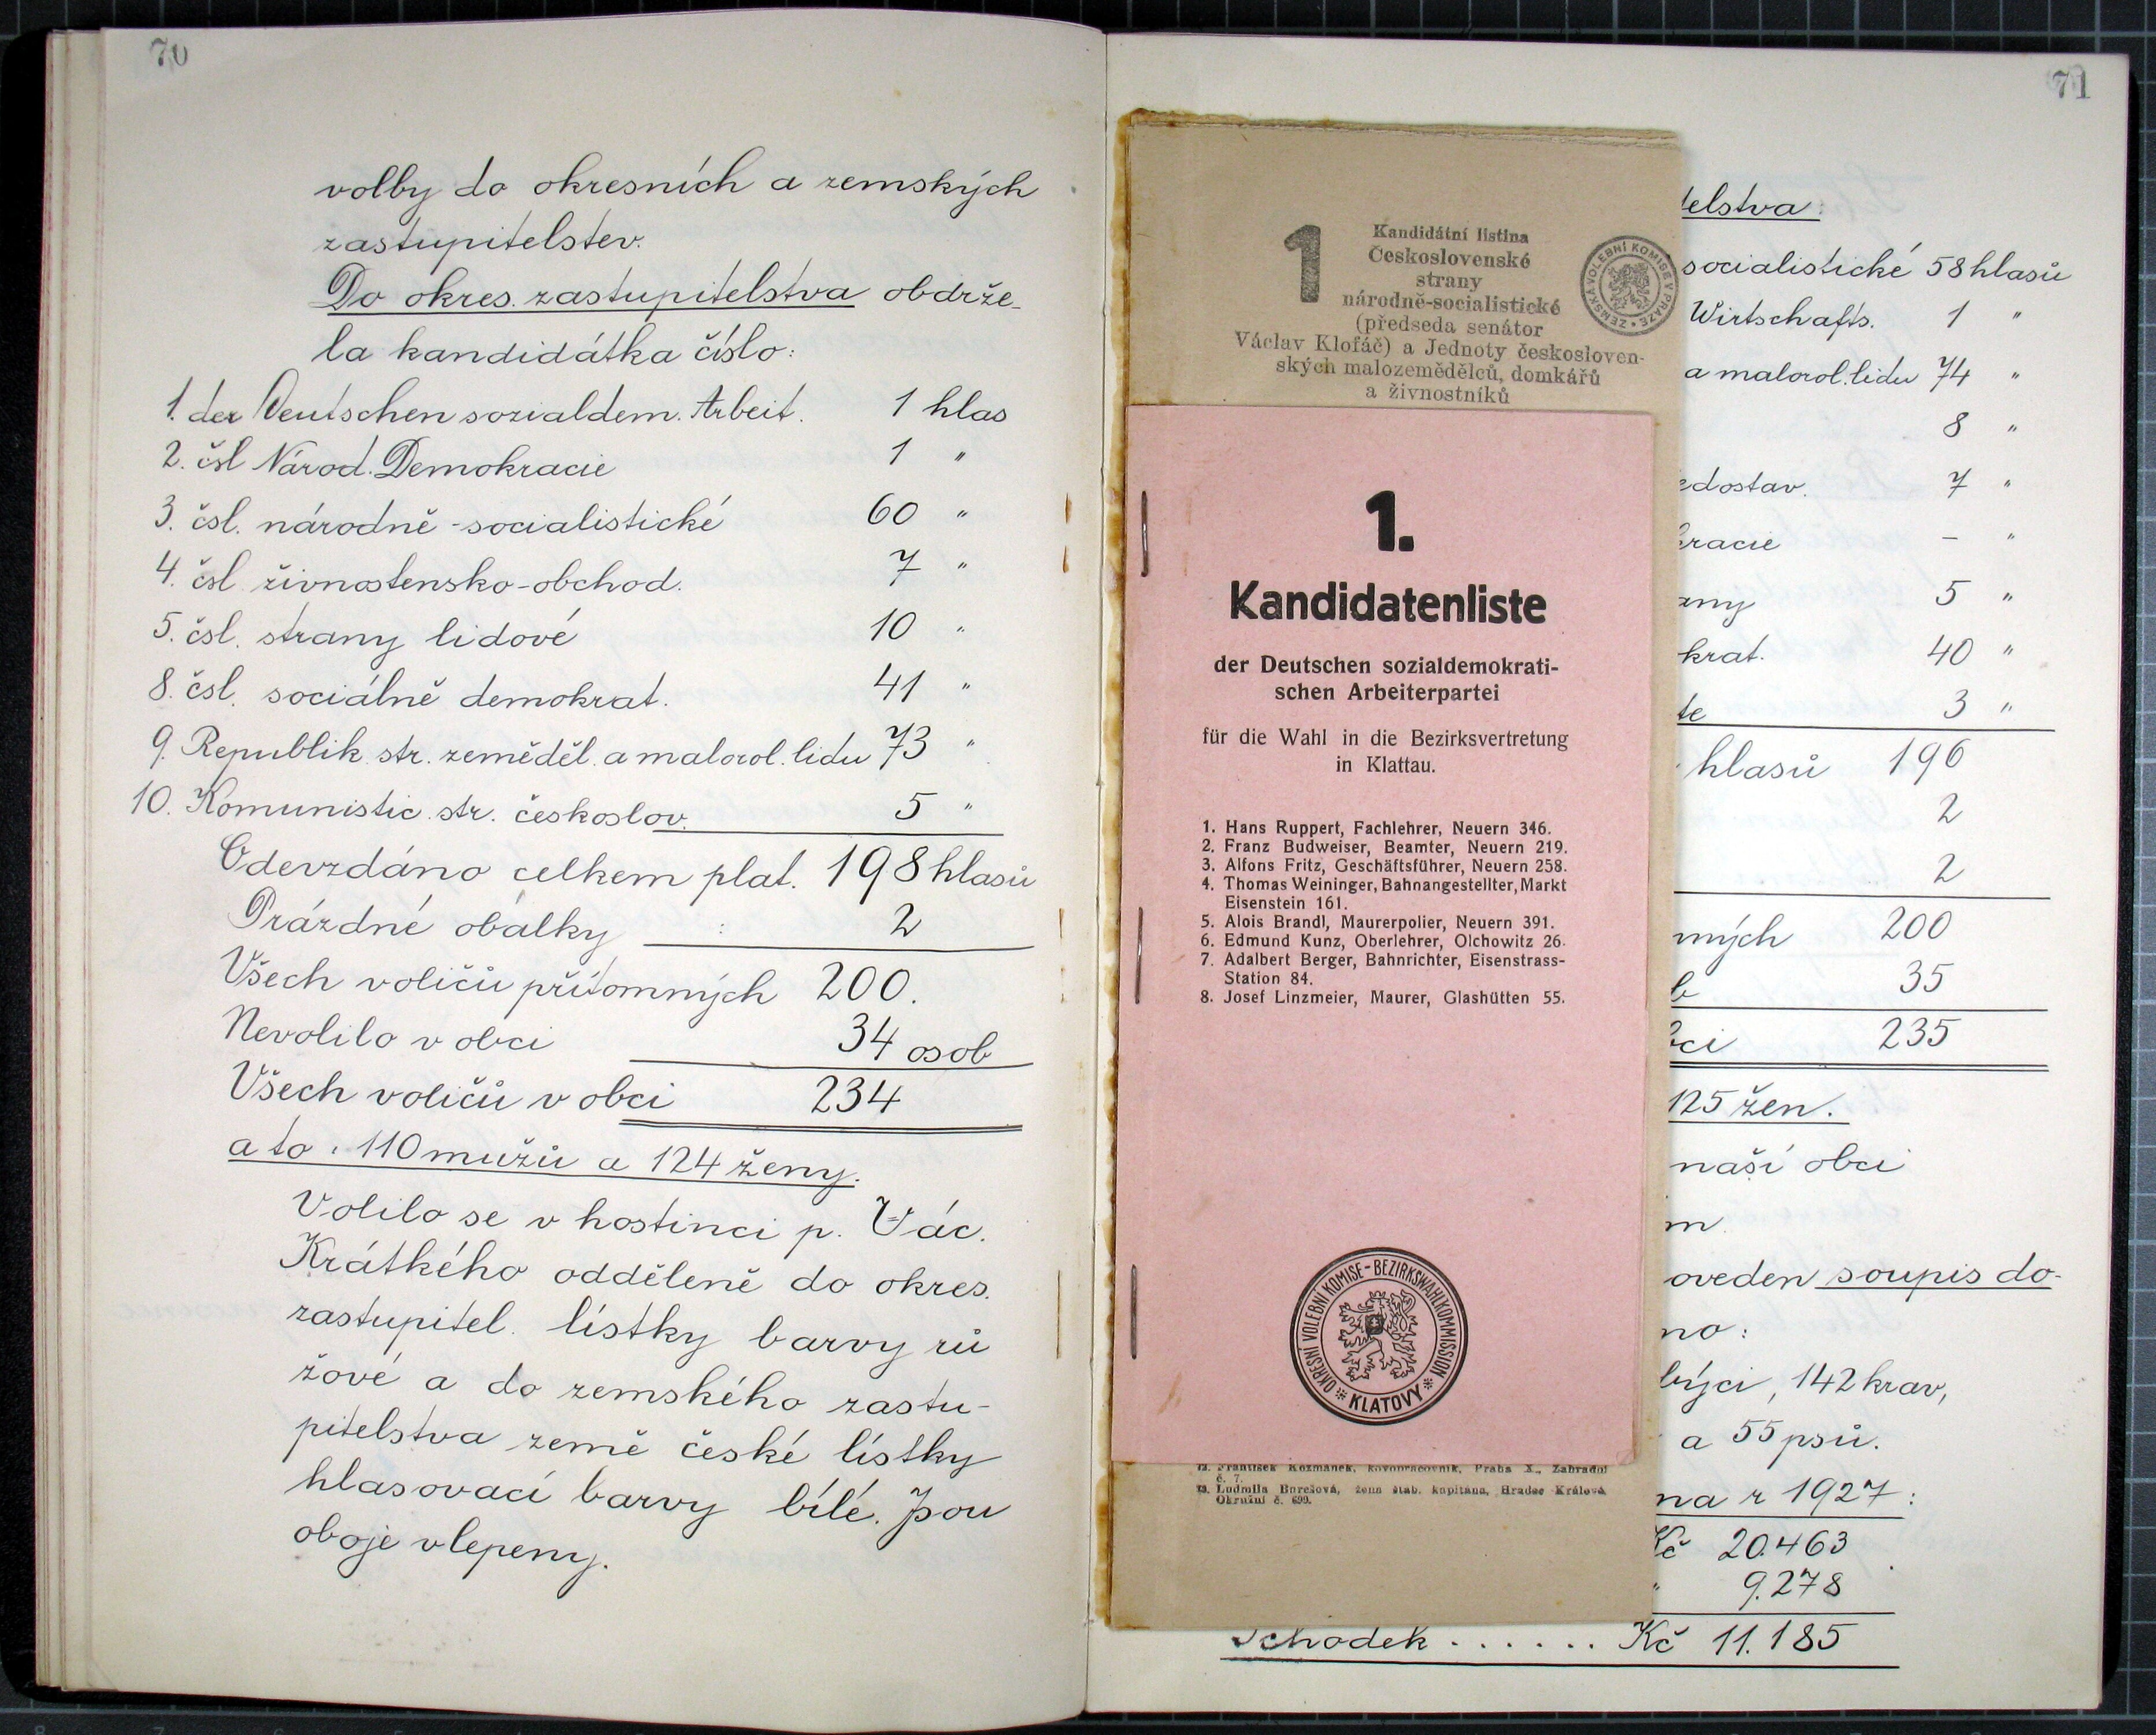 70
volby do okresních a zemských
zastupitelstev.
Do okres. zastupitelstva obdrže-
la kandidátka číslo:
1. der Deutschen sozialdem. Arbeit. 1 hlas
2. čsl Národ. Demokracie 1 "
3. čsl. národně-socialistické 60 "
4. čsl živnostensko-obchod. 7 "
5. čsl. strany lidové 10 "
8. čsl. sociálně demokrat. 41 "
9. Republik. str. zeměděl. a malorol. lidu 73 "
10. Komunistic. str. českoslov. 5 "
Odevzdáno celkem plat. 198 hlasů
Prázdné obálky : 2
Všech voličů přítomných 200.
Nevolilo v obci 34 osob
Všech voličů v obci 234
a to: 110 mužů a 124 ženy.
Volilo se v hostinci p. Vác.
Krátkého odděleně do okres.
zastupitel. lístky barvy rů
žové a do zemského zastu-
pitelstva země české lístky
hlasovací barvy bílé. Jsou
oboje vlepeny.
71
telstva:
socialistické 58 hlasů
Wirtschafts. 1 "
a malorol. lidu 74 "
8 "
edostav. 7 "
kracie - "
any 5 "
krat. 40 "
te 3 "
hlasů 196
2
2
mných 200
b 35
bci 235
125 žen.
naší obci
m
oveden soupis do-
no:
býci, 142 krav,
a 55 psů.
na r 1927:
Kč 20.463
" 9.278
Schodek . . . . . . Kč 11.185
1
Kandidátní listina
Československé
strany
národně-socialistické
(předseda senátor
Václav Klofáč) a Jednoty českosloven-
ských malozemědělců, domkářů
a živnostníků
ZEMSKÁ VOLEBNÍ KOMISE V PRAZE
1.
Kandidatenliste
der Deutschen sozialdemokrati-
schen Arbeiterpartei
für die Wahl in die Bezirksvertretung
in Klattau.
1. Hans Ruppert, Fachlehrer, Neuern 346.
2. Franz Budweiser, Beamter, Neuern 219.
3. Alfons Fritz, Geschäftsführer, Neuern 258.
4. Thomas Weininger, Bahnangestellter, Markt
Eisenstein 161.
5. Alois Brandl, Maurerpolier, Neuern 391.
6. Edmund Kunz, Oberlehrer, Olchowitz 26.
7. Adalbert Berger, Bahnrichter, Eisenstrass-
Station 84.
8. Josef Linzmeier, Maurer, Glashütten 55.
OKRESNÍ VOLEBNÍ KOMISE - BEZIRKSWAHLKOMMISSION
* KLATOVY *
František Kozmánek, kovopracovník, Praha X., Zahradní
č. 7.
Ludmila Burešová, žena štáb. kapitána, Hradec Králové
Okružní č. 699.